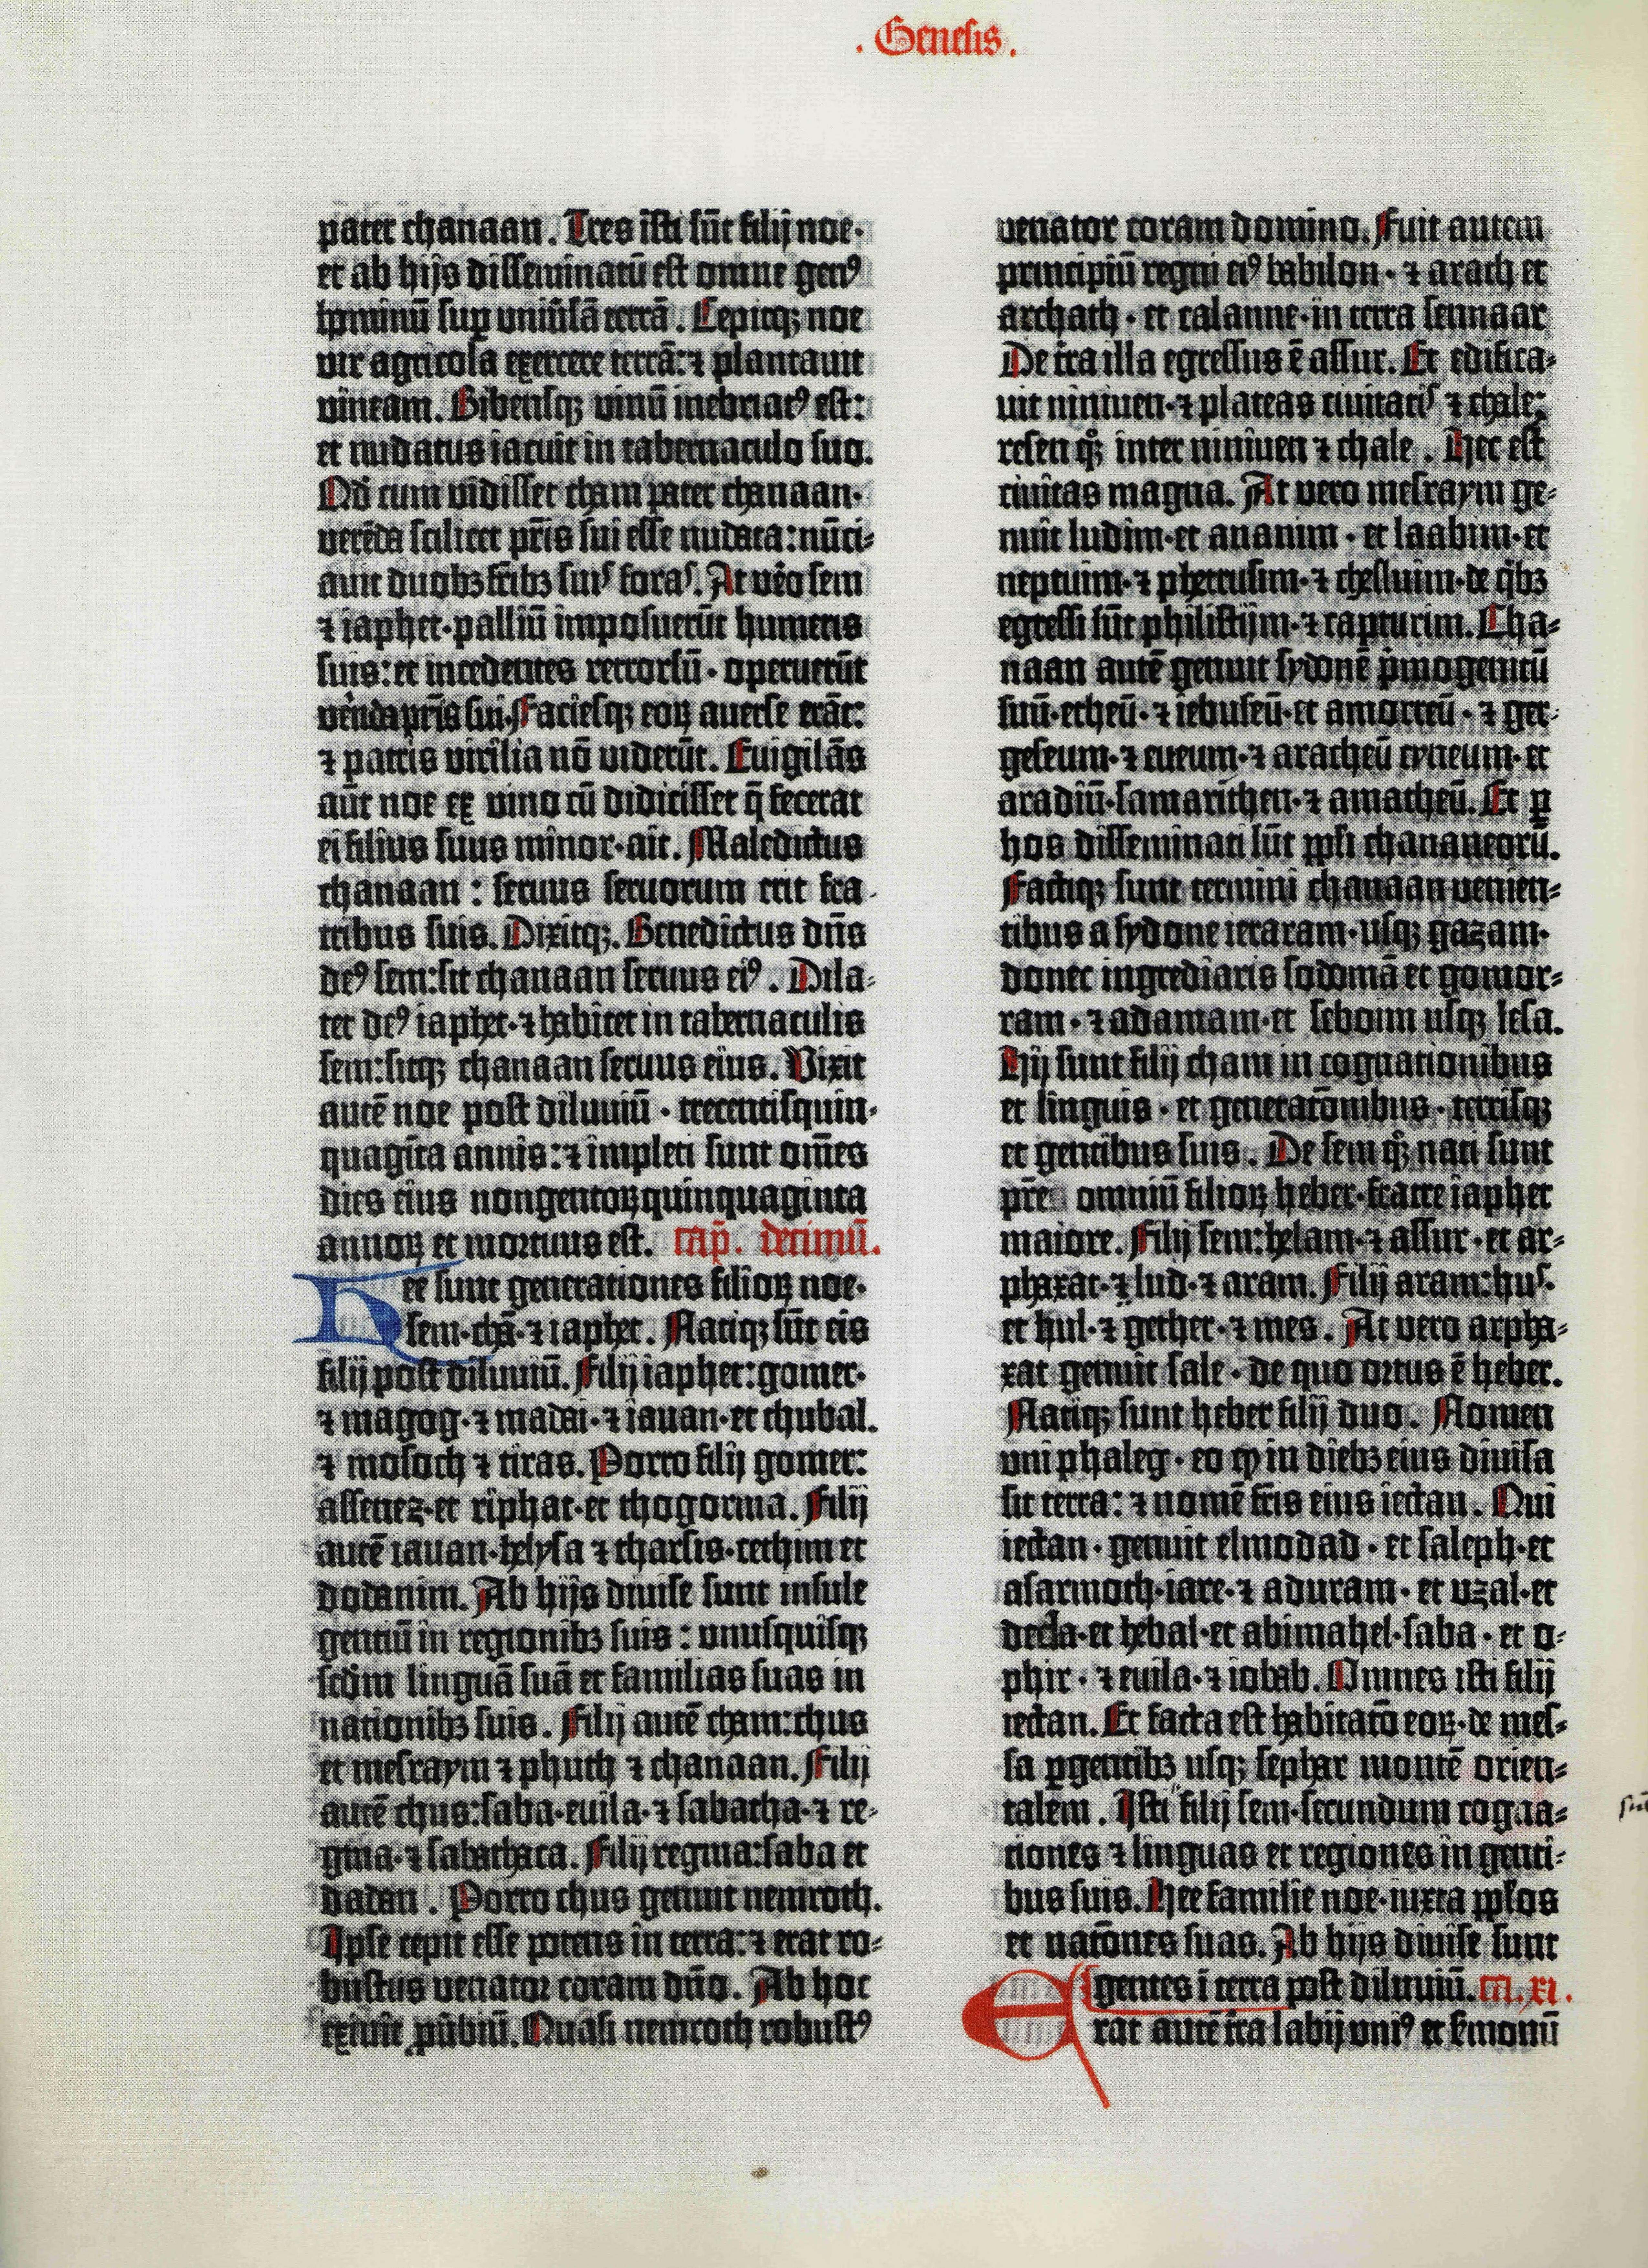 . Genesis .
pater chanaan. Tres isti sūt filij noe·
et ab hijs disseminatū est omne genꝰ
hominū sup̱ uniūsā terrā. Cepitqꝫ noe
vir agricola exercere terrā: ⁊ plantauit
vineam. Bibensqꝫ vinū inebriatꝰ est:
et nudatus iacuit in tabernaculo suo.
Qd̄ cum vidisset cham pater chanaan·
verēda scilicet pr̄is sui esse nudata: nūci⸗
auit duobꝫ fr̄ibꝫ suis foras. At vēo sem
⁊ iaphet· palliū imposuerūt humeris
suis: et incedentes retrorsū· operuerūt
vēnda pr̄is sui. Faciesqꝫ eoꝝ auerse erāt:
⁊ patris virilia nō viderūt. Euigilās
aūt noe ex vino cū didicisset q̄ fecerat
ei filius suus minor· ait. Maledictus
chanaan: seruus seruorum erit fra⸗
tribus suis. Dixitqꝫ. Benedictus dn̄s
deꝰ sem: sit chanaan seruus eiꝰ. Dila⸗
tet deꝰ iaphet· ⁊ habitet in tabernaculis
sem: sitqꝫ chanaan seruus eius. Vixit
autē noe post diluuiū· trecentisquin⸗
quagīta annis: ⁊ impleti sunt om̄es
dies eius nongentoꝝ quinquaginta
annoꝝ et mortuus est. cap̄. decimū.
Hee sunt generationes filioꝝ noe·
sem· chā· ⁊ iaphet. Natiqꝫ sūt eis
filij post diluuiū. Filij iaphet: gomer·
⁊ magog· ⁊ madai· ⁊ iauan· et thubal.
⁊ mosoch ⁊ tiras. Porro filij gomer:
assenez· et riphat· et thogorma. Filij
autē iauan· helysa ⁊ tharsis· cethim et
dodanim. Ab hijs diuise sunt insule
gentiū in regionibꝫ suis: unusquisqꝫ
scd̄m linguā suā et familias suas in
nationibꝫ suis. Filij autē cham: chus
et mesraym ⁊ phuth ⁊ chanaan. Filij
autē chus: saba· euila· ⁊ sabatha· ⁊ re⸗
gma· ⁊ sabathaca. Filij regma: saba et
dadan. Porro chus genuit nemroth.
Ipse cepit esse potens in terra: ⁊ erat ro⸗
bustus venator coram dn̄o. Ab hoc
exiuit ꝓūbiū. Quasi nemroth robustꝰ
venator coram domino. Fuit autem
principiū regni eiꝰ babilon· ⁊ arach et
archath· et calanne· in terra sennaar
De tr̄a illa egressus ē assur. Et edifica⸗
uit niniuen· ⁊ plateas ciuitatis ⁊ chale:
resen qͦꝫ inter niniuen ⁊ chale. Hec est
ciuitas magna. At vero mesraym ge⸗
nuit ludim· et ananim· et laabim· et
neptuim· ⁊ phetrusim· ⁊ chesluim· de qͥbꝫ
egressi sūt philistijm· ⁊ capturim. Cha⸗
naan autē genuit sydonē pͥmogenitū
suū· etheū· ⁊ iebuseū· et amorreū· ⁊ ger⸗
geseum· ⁊ eueum· ⁊ aracheū cyneum· et
aradiū· samarithen· ⁊ amatheū. Et p̱
hos disseminati sūt pp̄li chananeorū.
Factiqꝫ sunt termini chanaan venien⸗
tibus a sydone ieraram· usqꝫ gazam·
donec ingrediaris sodomā et gomor⸗
ram· ⁊ adamam· et seboim usqꝫ lesa.
Hij sunt filij cham in cognationibus
et linguis· et generatōnibus· terrisqꝫ
et gentibus suis. De sem qͦꝫ nati sunt
pr̄e omniū filioꝝ heber· fratre iaphet
maiore. Filij sem: helam· ⁊ assur· et ar⸗
phaxat· ⁊ lud· ⁊ aram. Filij aram: hus·
et hul· ⁊ gether· ⁊ mes. At vero arpha⸗
xat genuit sale· de quo ortus ē heber.
Natiqꝫ sunt heber filij duo. Nomen
uni phaleg· eo ꝙ in diebꝫ eius diuisa
sit terra: ⁊ nomē fr̄is eius iectan. Qui
iectan· genuit elmodad· et saleph· et
asarmoth· iare· ⁊ aduram· et uzal· et
decla· et hebal· et abimahel· saba· et o⸗
phir· ⁊ euila· ⁊ iobab. Omnes isti filij
iectan. Et facta est habitatō eoꝝ· de mes⸗
sa p̱gentibꝫ usqꝫ sephar montē orien⸗
talem. Isti filij sem· secundum cogna⸗
tiones ⁊ linguas et regiones in genti⸗
bus suis. Hee familie noe· iuxta pp̄los
et natōnes suas. Ab hijs diuise sunt
gentes ī terra post diluuiū. ca. xi.
Erat autē tr̄a labij uniꝰ et s̄monū